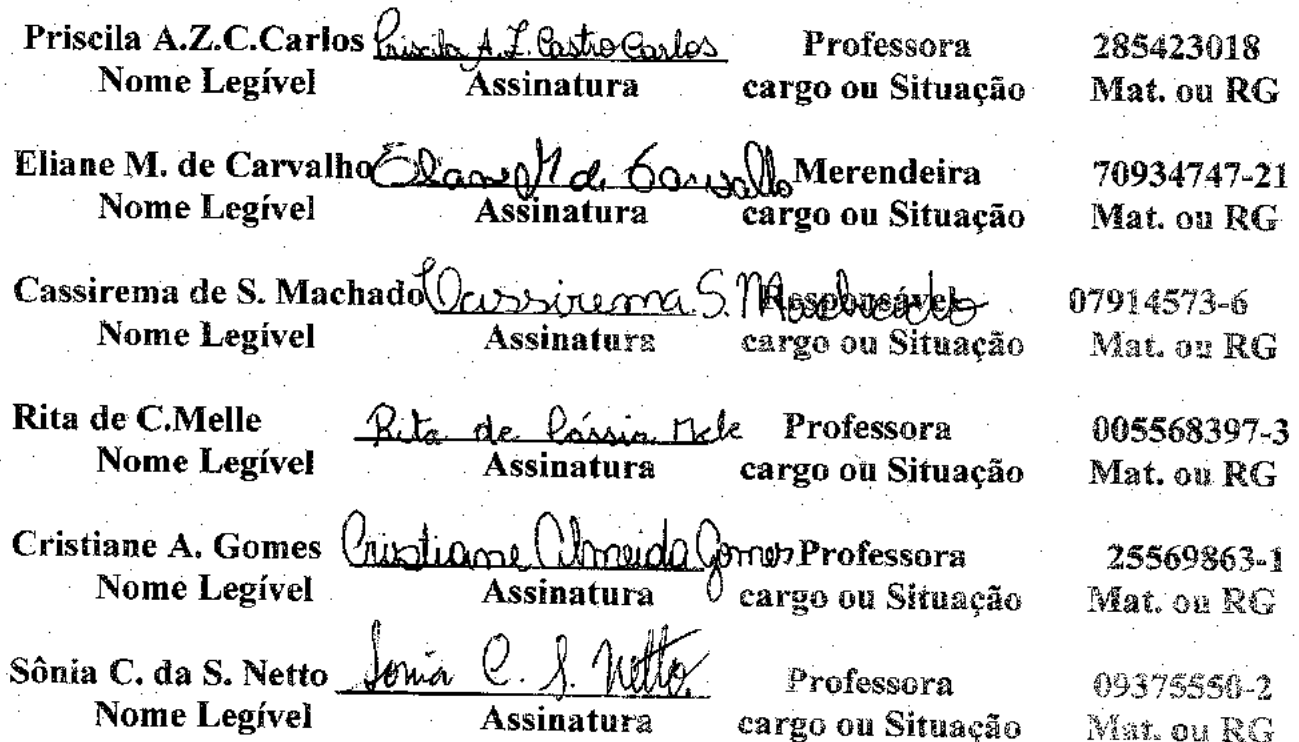 Priscila A.Z.C.Carlos Priscila A. Z. Castro Carlos Professora 285423018
Nome Legível Assinatura cargo ou Situação Mat. ou RG
Eliane M. de Carvalho Eliane M de Carvalho Merendeira 70934747-21
Nome Legível Assinatura cargo ou Situação Mat. ou RG
Cassirema de S. Machado Cassirema S. Machado Responsável 07914573-6
Nome Legível Assinatura cargo ou Situação Mat. ou RG
Rita de C.Melle Rita de Cássia Mele Professora 005568397-3
Nome Legível Assinatura cargo ou Situação Mat. ou RG
Cristiane A. Gomes Cristiane Almeida Gomes Professora 25569863-1
Nome Legível Assinatura cargo ou Situação Mat. ou RG
Sônia C. da S. Netto Sonia C. S. Netto Professora 09375550-2
Nome Legível Assinatura cargo ou Situação Mat. ou RG